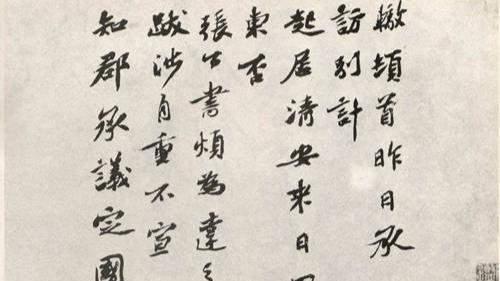 轍頓首昨日承
訪別計
起居清安來日
東否
張公書煩為達
跋涉自重不宣
知郡承議定國